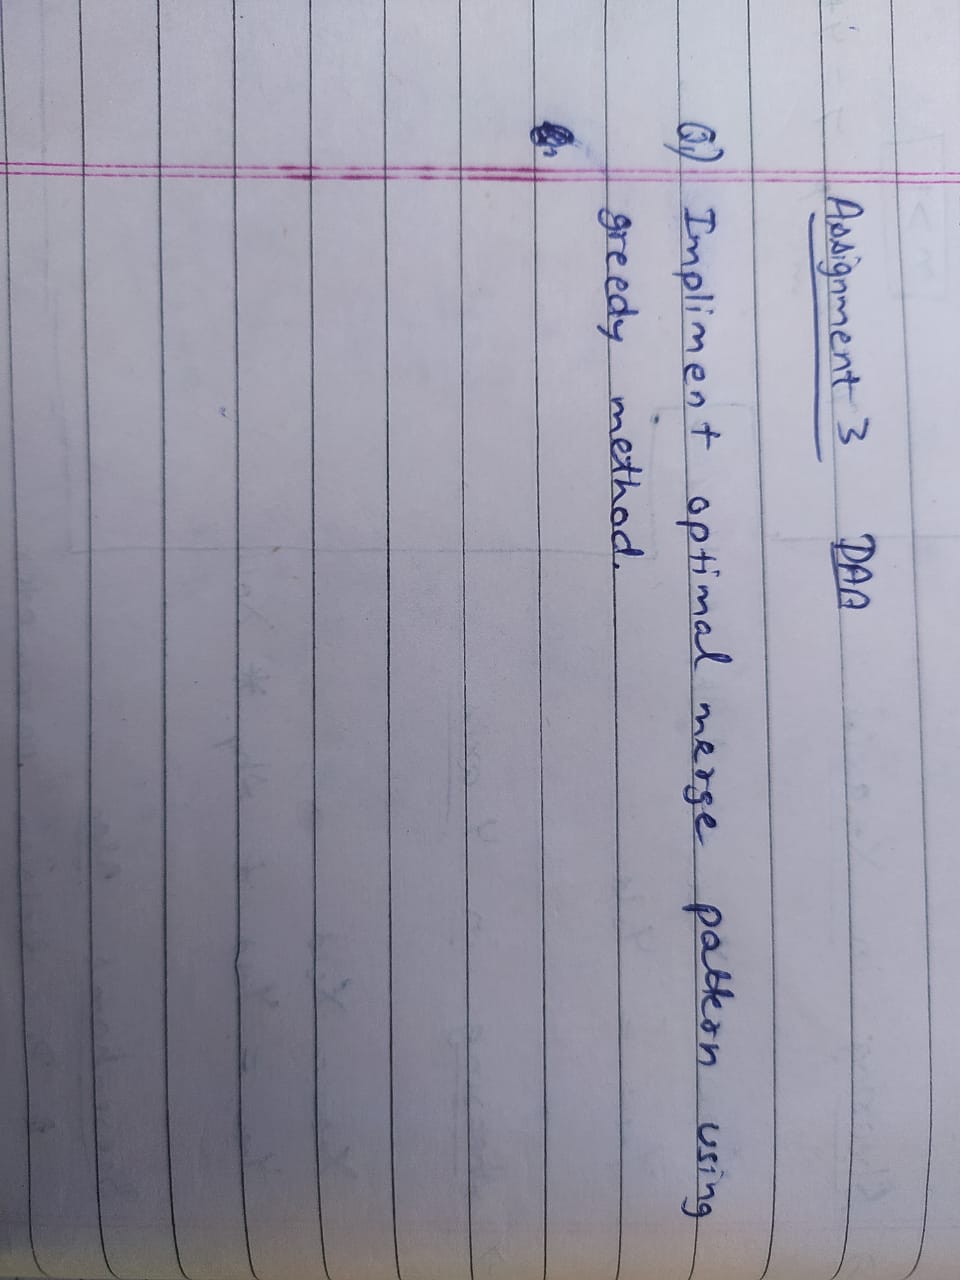 Assignment 3 DAA
Q1) Impliment optimal merge pattern using
greedy method.